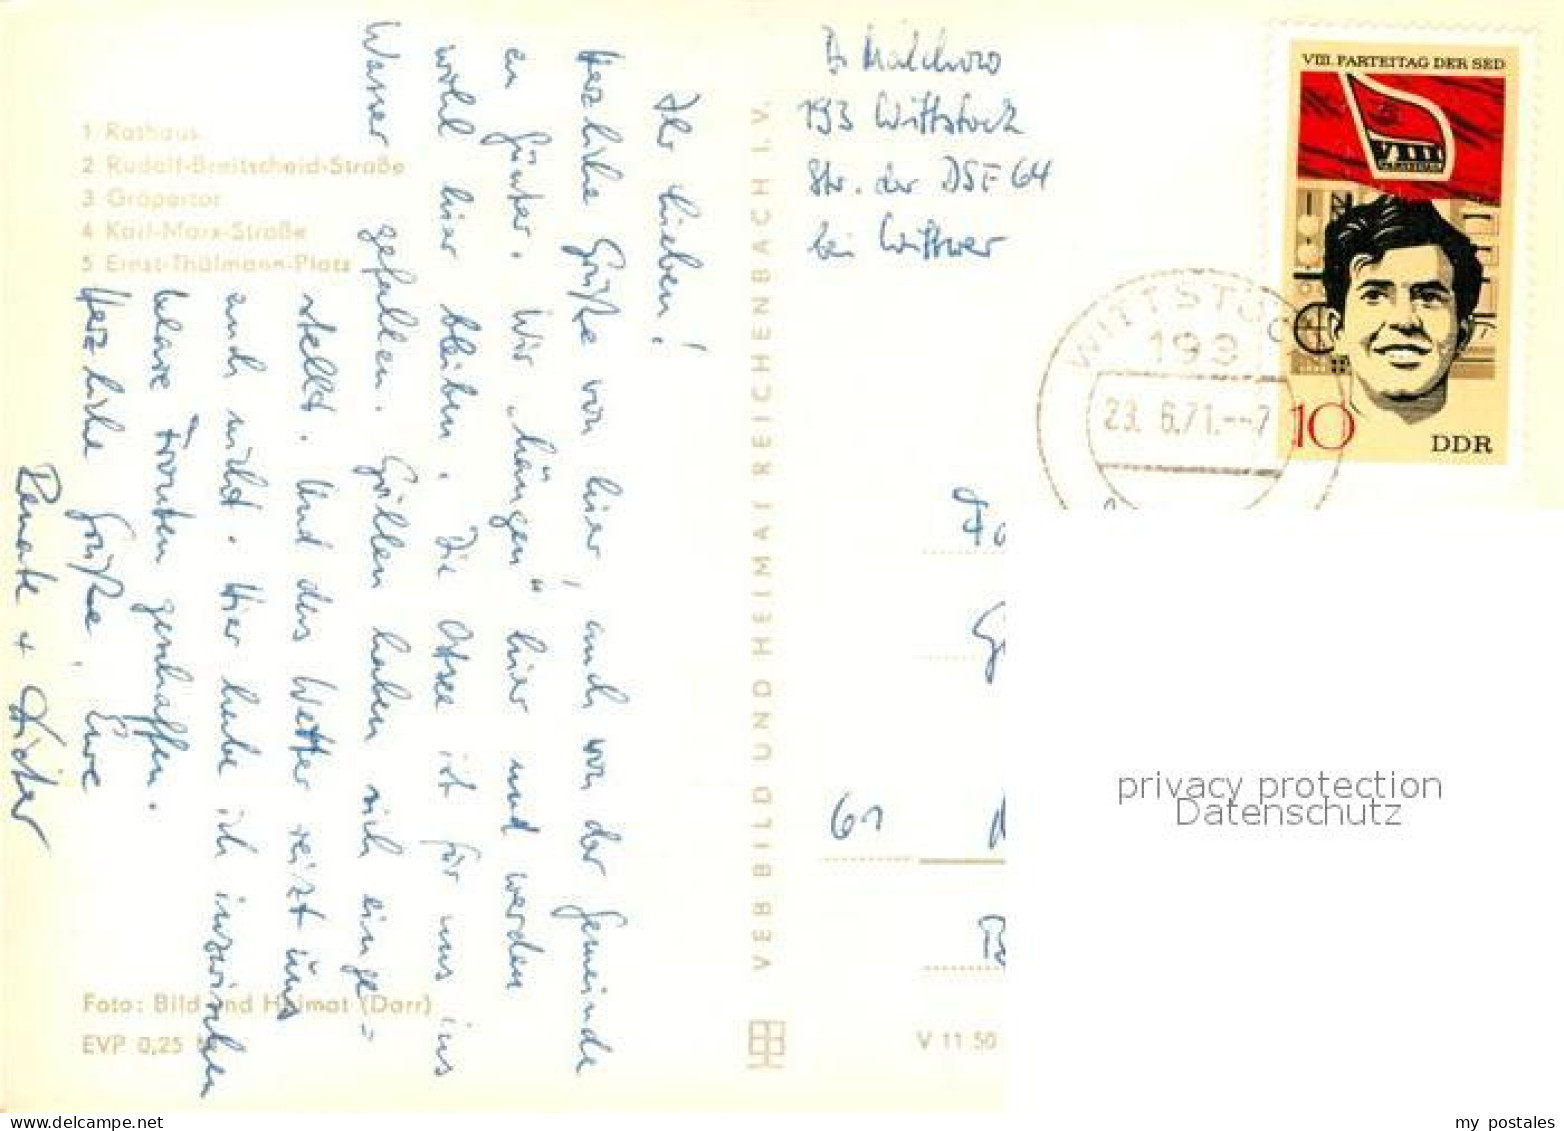 1 Rathaus
2 Rudolf-Breitscheid-Straße
3 Gröpertor
4 Karl-Marx-Straße
5 Ernst-Thälmann-Platz
Ihr Lieben!
Herzliche Grüße von hier, auch von der Gemeinde
en Günter. Wir „hängen" hier und werden
wohl hier bleiben. Die Ostsee ist für uns ins
Wasser gefallen. Grillen haben sich einge-
stellt. Und das Wetter reizt uns
auch nicht. Hier habe ich inzwischen
klare Fronten geschaffen.
Herzliche Grüße, Eure
Renate +
Foto: Bild und Heimat (Darr)
EVP 0,25 M
VEB BILD UND HEIMAT REICHENBACH I. V.
V 11 50
193 Wittstock
Str. der DSF 64
bei Wittwer
VIII. PARTEITAG DER SED
VIII
10
DDR
WITTSTOCK
193
23. 6.71.--7
61
privacy protection
Datenschutz
my postales